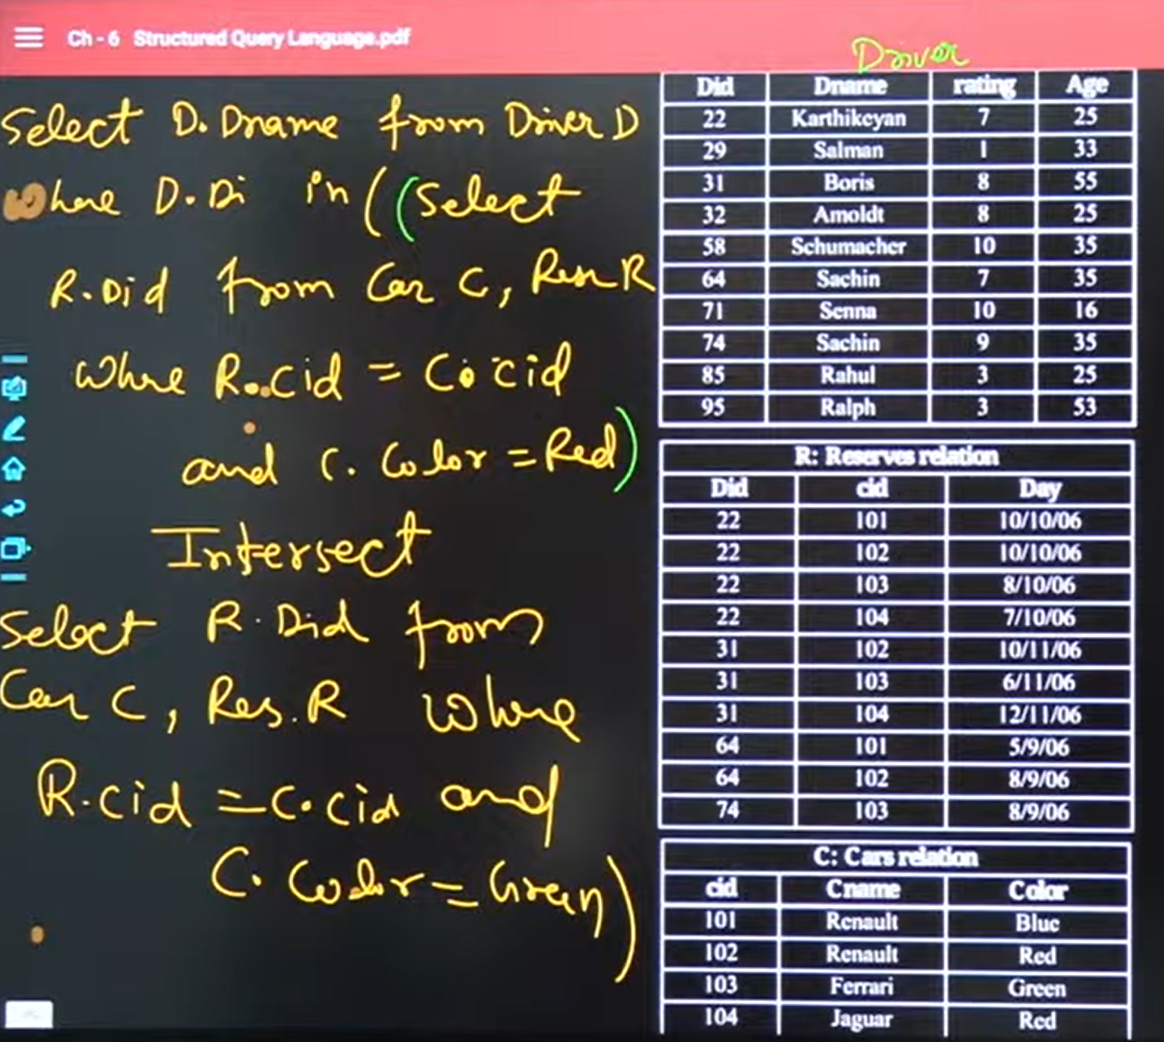 Ch - 6 Structured Query Language.pdf
Select D. Dname from Driver D
where D.Di in ((Select
R.Did from Car C, Res R
where R.cid = C.cid
and C. Color = Red)
Intersect
Select R.Did from
Car C, Res. R where
R.cid = C.cid and
C. Color = Green)
Driver
Did Dname rating Age
22 Karthikeyan 7 25
29 Salman 1 33
31 Boris 8 55
32 Amoldt 8 25
58 Schumacher 10 35
64 Sachin 7 35
71 Senna 10 16
74 Sachin 9 35
85 Rahul 3 25
95 Ralph 3 53
R: Reserves relation
Did cid Day
22 101 10/10/06
22 102 10/10/06
22 103 8/10/06
22 104 7/10/06
31 102 10/11/06
31 103 6/11/06
31 104 12/11/06
64 101 5/9/06
64 102 8/9/06
74 103 8/9/06
C: Cars relation
cid Cname Color
101 Renault Blue
102 Renault Red
103 Ferrari Green
104 Jaguar Red